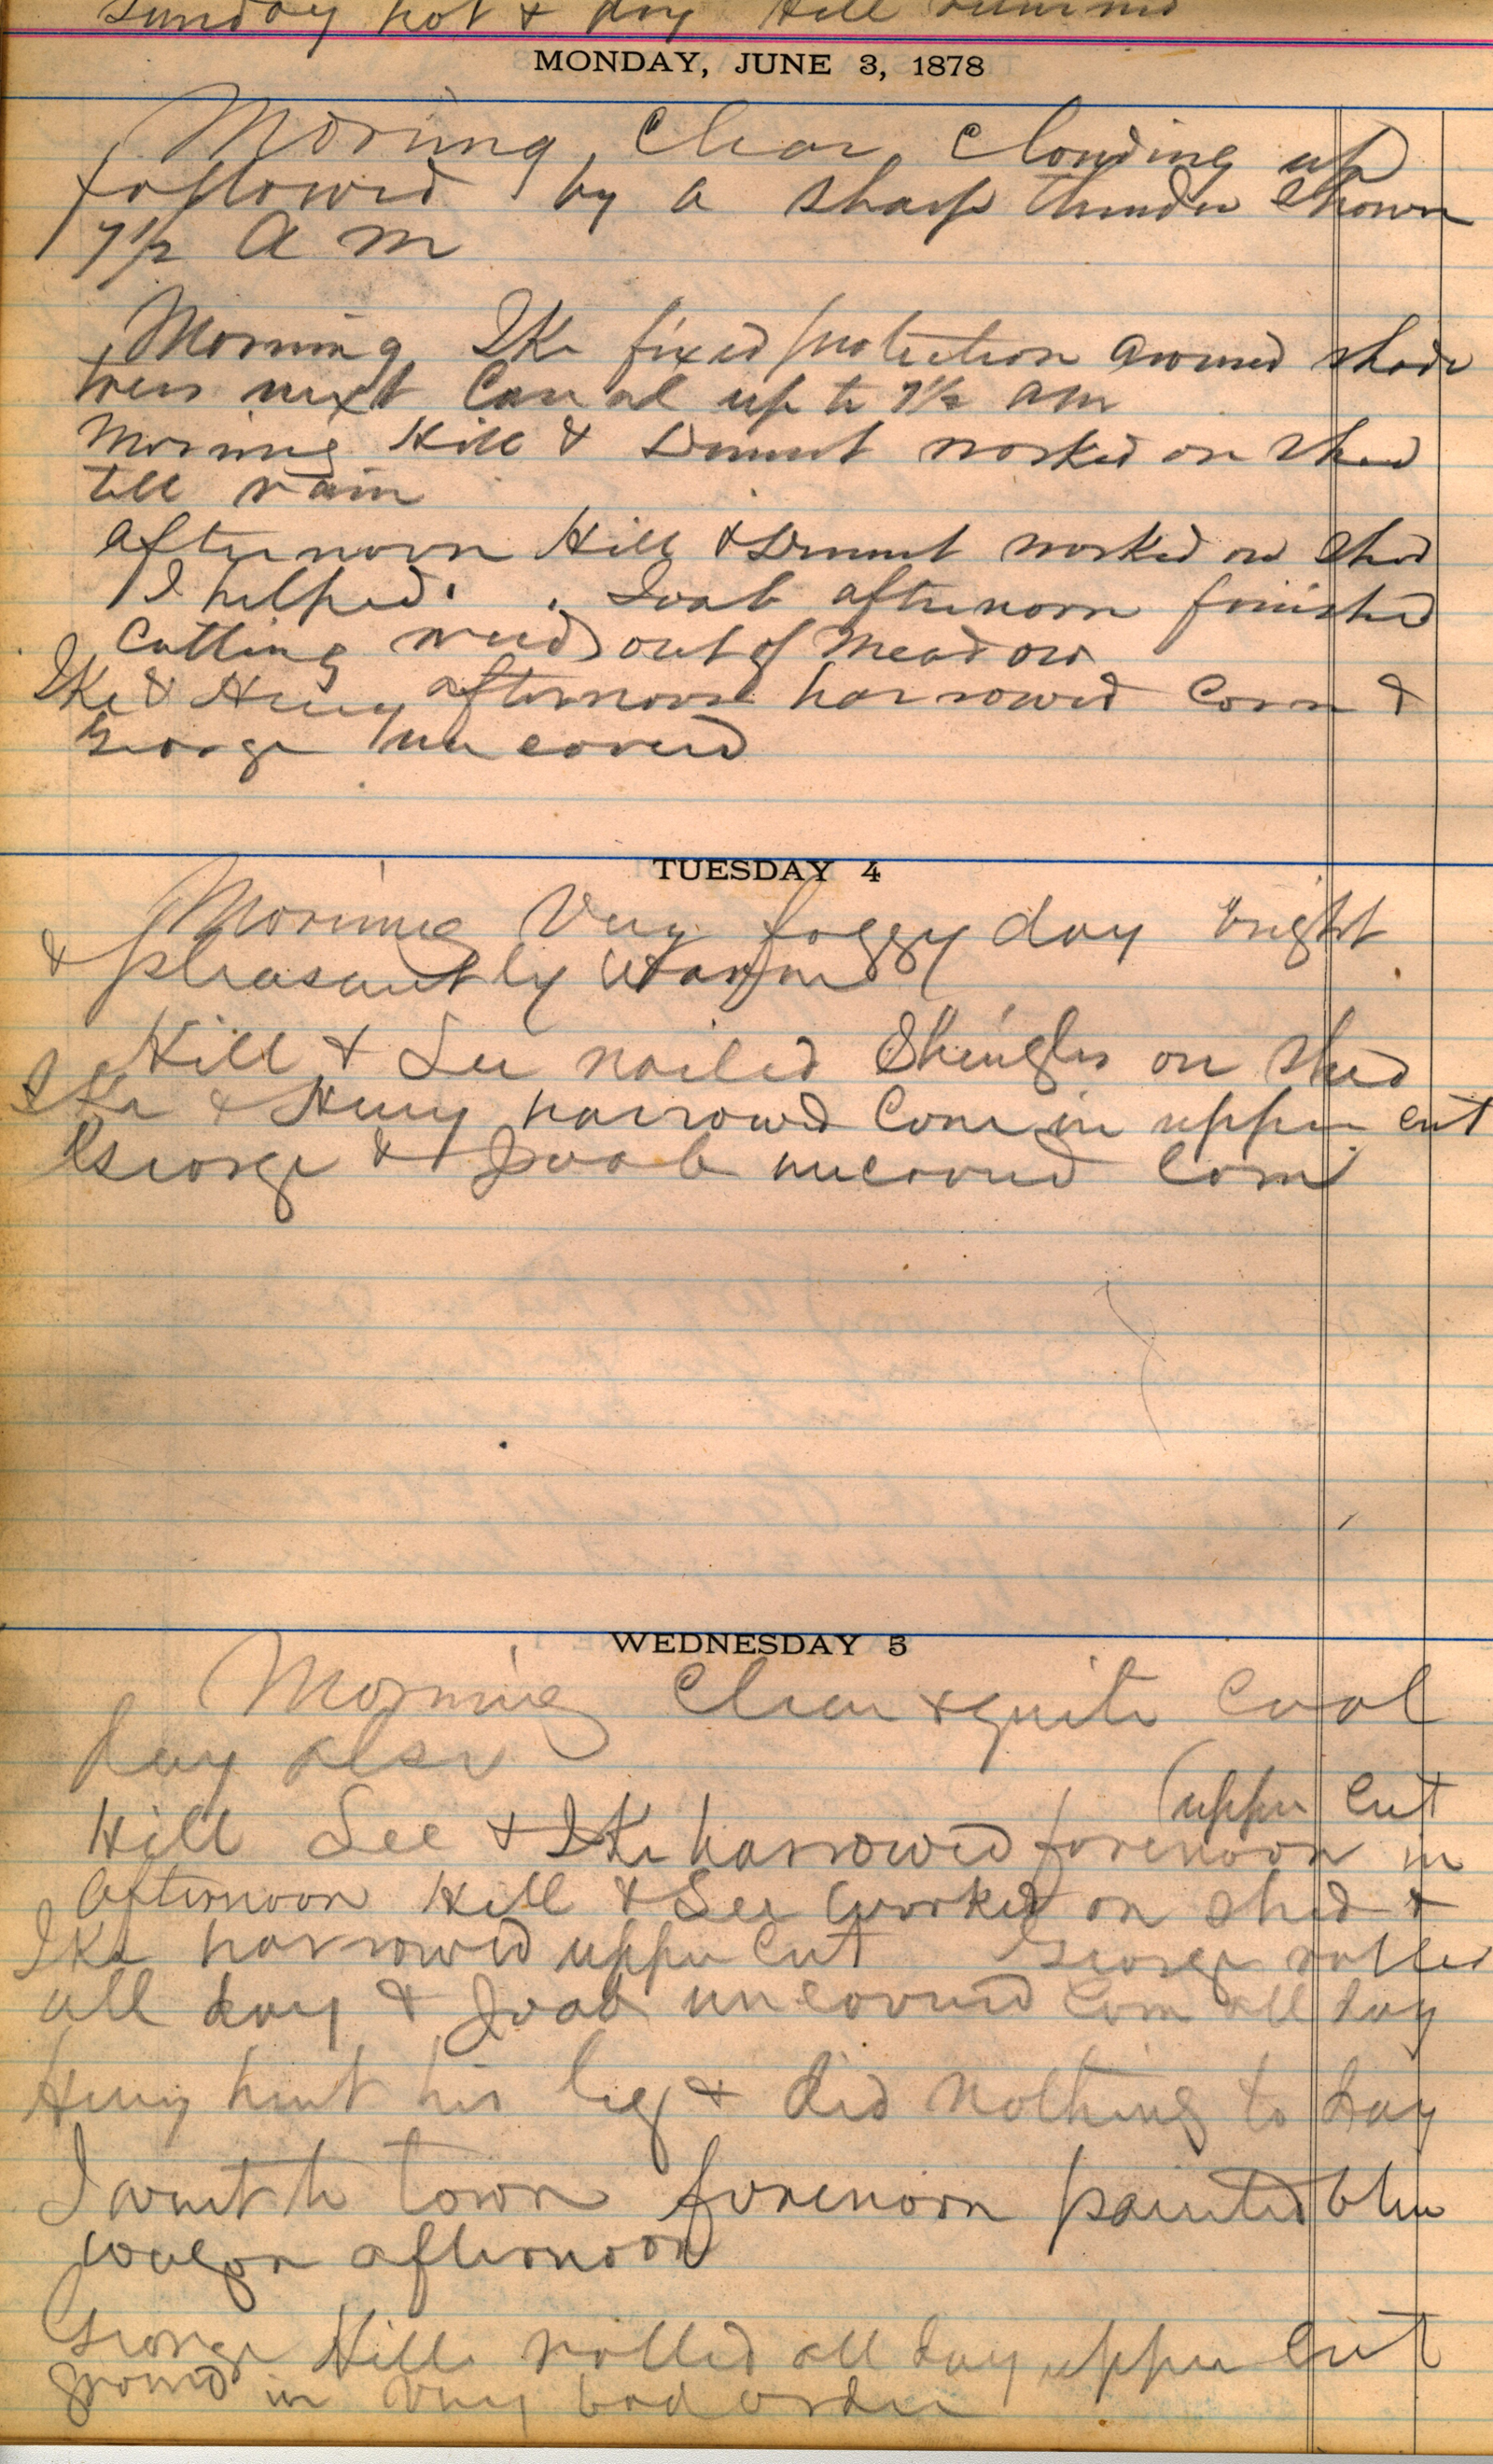 Sunday hot & dry Hill returned
MONDAY, JUNE 3, 1878
Morning, Clear, Clouding up
followed by a sharp thunder shower
7½ A M
Morning Ike fixed protection around shade
trees next Canal up to 7½ AM
Morning Hill & worked on shed
till rain
afternoon Hill & worked on shed
I helped. Joab afternoon finished
Cutting weeds out of Meadow
Ike & Henry afternoon harrowed Corn &
George uncovered
TUESDAY 4
Morning Very foggy day bright
& pleasantly Warm
Hill & Lee nailed Shingles on Shed
Ike & Henry harrowed Corn in upper cut
George & Joab uncovered Corn
WEDNESDAY 5
Morning Clear & quite Cool
day also
(upper Cut
Hill Lee & Ike harrowed forenoon in
Afternoon Hill & Lee worked on shed &
Ike harrowed upper Cut George rolled
all day & Joab uncovered Corn all day
Henry hurt his leg & did nothing to day
I went to town forenoon painted blue
wagon afternoon
George Hill rolled all day upper Cut
ground in Very bad order